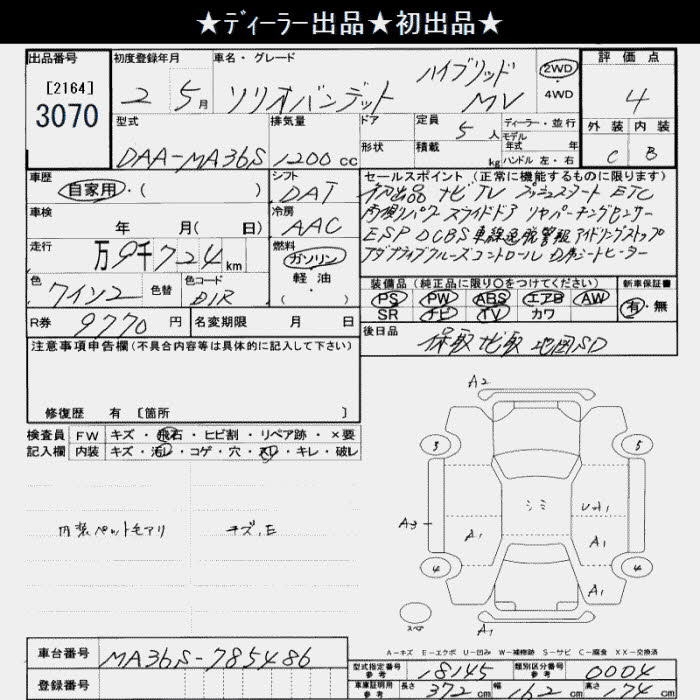 ★ディーラー出品★初出品★
出品番号
[2164]
3070
初度登録年月
2 5月
車名・グレード
ソリオバンデット
ハイブリッド
MV
2WD
4WD
評価点
4
外装 内装
C B
型式
DAA-MA36S
排気量
1200cc
ドア
形状
定員
5人
積載
kg
ディーラー・並行
モデル
年式 年
ハンドル 左・右
車歴
自家用・( )
シフト
DAT
車検
年 月( 日)
冷房
AAC
走行
万9千724km
燃料
ガソリン
軽油
( )
色
ワイン2
色替
色コード
R券
9770円
名変期限 月 日
セールスポイント(正常に機能するものに限ります)
初出品 ナビ TV プッシュスタート ETC
両側パワースライドドア リヤパーキングセンサー
ESP DCBS 車線逸脱警報 アイドリングストップ
アダプティブクルーズコントロール D席シートヒーター
装備品(純正品に限り○をつけてください)
PS PW ABS エアB AW
SR ナビ TV カワ
新車保証書
有・無
後日品
保取 ナビ取 地図SD
注意事項申告欄(不具合内容等は具体的に記入して下さい)
修復歴 有 [箇所 ]
検査員
記入欄
FW キズ・飛石・ヒビ割・リペア跡・×要
内装 キズ・汚レ・コゲ・穴・スリ・キレ・破レ
内装ペットモアリ
キズ、E
A2
5 5
A3
シミ
U
A1
A1
A1
4 4
A1
スペ
A1
A-キズ E-エクボ U-凹み W-補修跡 S-サビ C-腐食 XX-交換済
車台番号
MA36S-785486
登録番号
型式指定番号
参考
18145
類別区分番号
参考
0004
車庫証明用
参考
長さ 372cm 幅 162cm 高さ 174cm